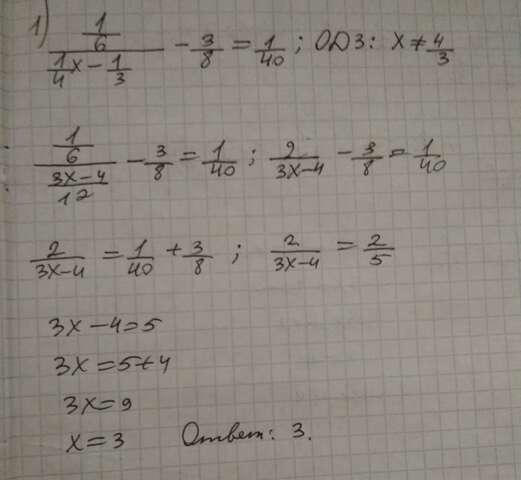 1) (1/6)/(1/4 x - 1/3) - 3/8 = 1/40 ; ОДЗ: x ≠ 4/3
(1/6)/((3x-4)/12) - 3/8 = 1/40 ; 2/(3x-4) - 3/8 = 1/40
2/(3x-4) = 1/40 + 3/8 ; 2/(3x-4) = 2/5
3x - 4 = 5
3x = 5 + 4
3x = 9
x = 3 Ответ: 3.